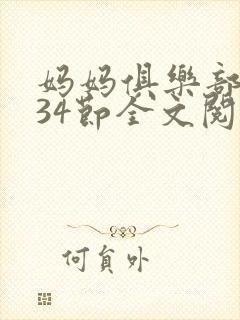 妈妈俱樂部
34節全文閱
何員外